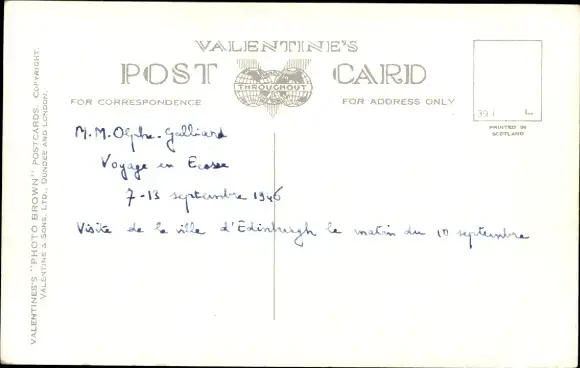 VALENTINE'S
POST CARD
THROUGHOUT
FOR CORRESPONDENCE
FOR ADDRESS ONLY
391 L
PRINTED IN
SCOTLAND
M.M. Olphe-Galliard
Voyage en Ecosse
7-13 septembre 1946
Visite de la ville d'Edinburgh le matin du 10 septembre
VALENTINE'S "PHOTO BROWN" POSTCARDS. COPYRIGHT.
VALENTINE & SONS, LTD., DUNDEE AND LONDON.